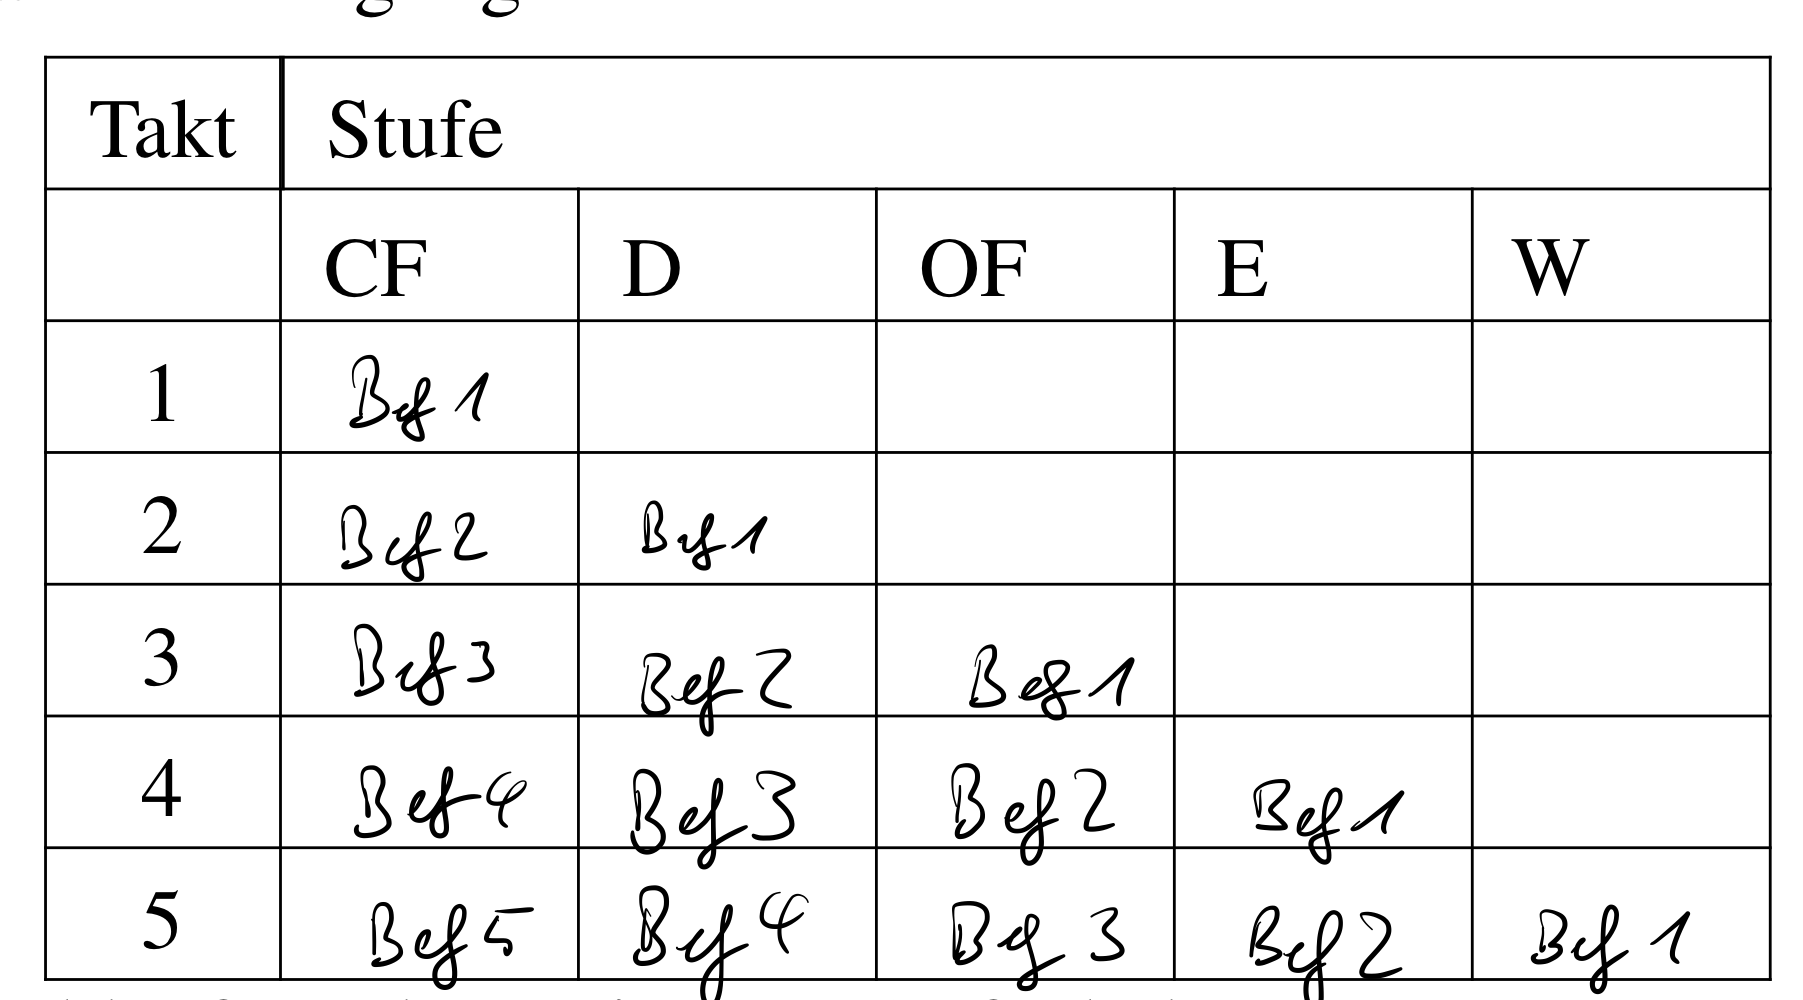 Takt Stufe
CF D OF E W
1 Bef 1
2 Bef 2 Bef 1
3 Bef 3 Bef 2 Bef 1
4 Bef 4 Bef 3 Bef 2 Bef 1
5 Bef 5 Bef 4 Bef 3 Bef 2 Bef 1